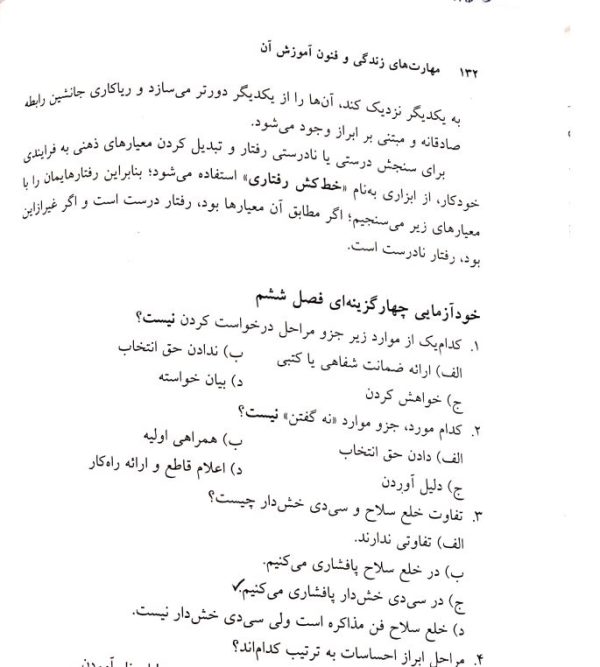 ۱۳۲ مهارت‌های زندگی و فنون آموزش آن
به یکدیگر نزدیک کند، آن‌ها را از یکدیگر دورتر می‌سازد و ریاکاری جانشین رابطه
صادقانه و مبتنی بر ابراز وجود می‌شود.
برای سنجش درستی یا نادرستی رفتار و تبدیل کردن معیارهای ذهنی به فرایندی
خودکار، از ابزاری به‌نام «خط‌کش رفتاری» استفاده می‌شود؛ بنابراین رفتارهایمان را با
معیارهای زیر می‌سنجیم؛ اگر مطابق آن معیارها بود، رفتار درست است و اگر غیرازاین
بود، رفتار نادرست است.
خودآزمایی چهارگزینه‌ای فصل ششم
۱. کدام‌یک از موارد زیر جزو مراحل درخواست کردن نیست؟
الف) ارائه ضمانت شفاهی یا کتبی ب) ندادن حق انتخاب
ج) خواهش کردن د) بیان خواسته
۲. کدام مورد، جزو موارد «نه گفتن» نیست؟
الف) دادن حق انتخاب ب) همراهی اولیه
ج) دلیل آوردن د) اعلام قاطع و ارائه راه‌کار
۳. تفاوت خلع سلاح و سی‌دی خش‌دار چیست؟
الف) تفاوتی ندارند.
ب) در خلع سلاح پافشاری می‌کنیم.
ج) در سی‌دی خش‌دار پافشاری می‌کنیم.✓
د) خلع سلاح فن مذاکره است ولی سی‌دی خش‌دار نیست.
۴. مراحل ابراز احساسات به ترتیب کدام‌اند؟